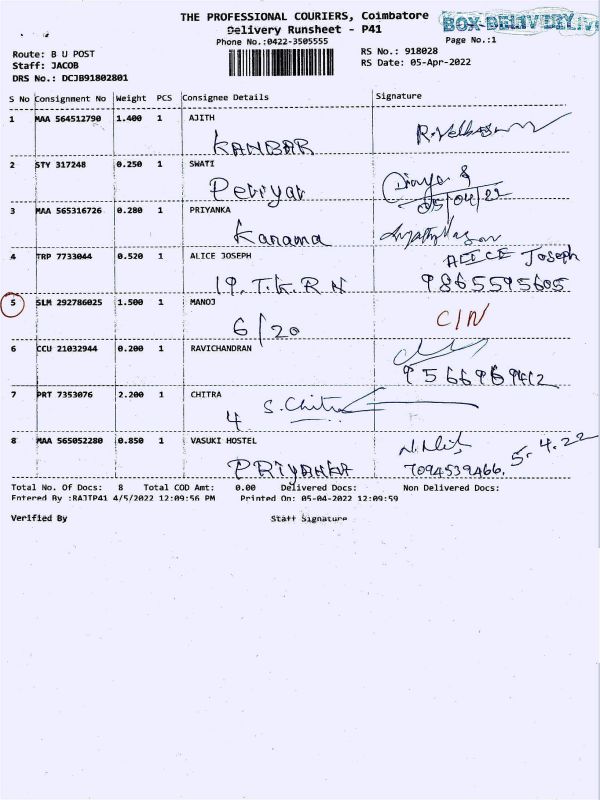 THE PROFESSIONAL COURIERS, Coimbatore
BOX-DELIVERY
Delivery Runsheet - P41
Phone No.:0422-3505555
Page No.:1
Route: B U POST
RS No.: 918028
Staff: JACOB
RS Date: 05-Apr-2022
DRS No.: DCJB91802801
S No Consignment No Weight PCS Consignee Details Signature
1 MAA 564512790 1.400 1 AJITH
KANBAR
2 STY 317248 0.250 1 SWATI
Periyar
05/04/22
3 MAA 565316726 0.280 1 PRIYANKA
Kanama
4 TRP 7733044 0.520 1 ALICE JOSEPH
ALICE Joseph
19, T.K.R N 9865595605
5 SLM 292786025 1.500 1 MANOJ
6/20 C/N
6 CCU 21032944 0.200 1 RAVICHANDRAN
9566969412
7 PRT 7353076 2.200 1 CHITRA
4 S.Chitra
8 MAA 565052280 0.850 1 VASUKI HOSTEL
5.4.22
PRIYANKA 7094539466,
Total No. Of Docs: 8 Total COD Amt: 0.00 Delivered Docs: Non Delivered Docs:
Entered By :RAJTP41 4/5/2022 12:09:56 PM Printed On: 05-04-2022 12:09:59
Verified By Staff Signature